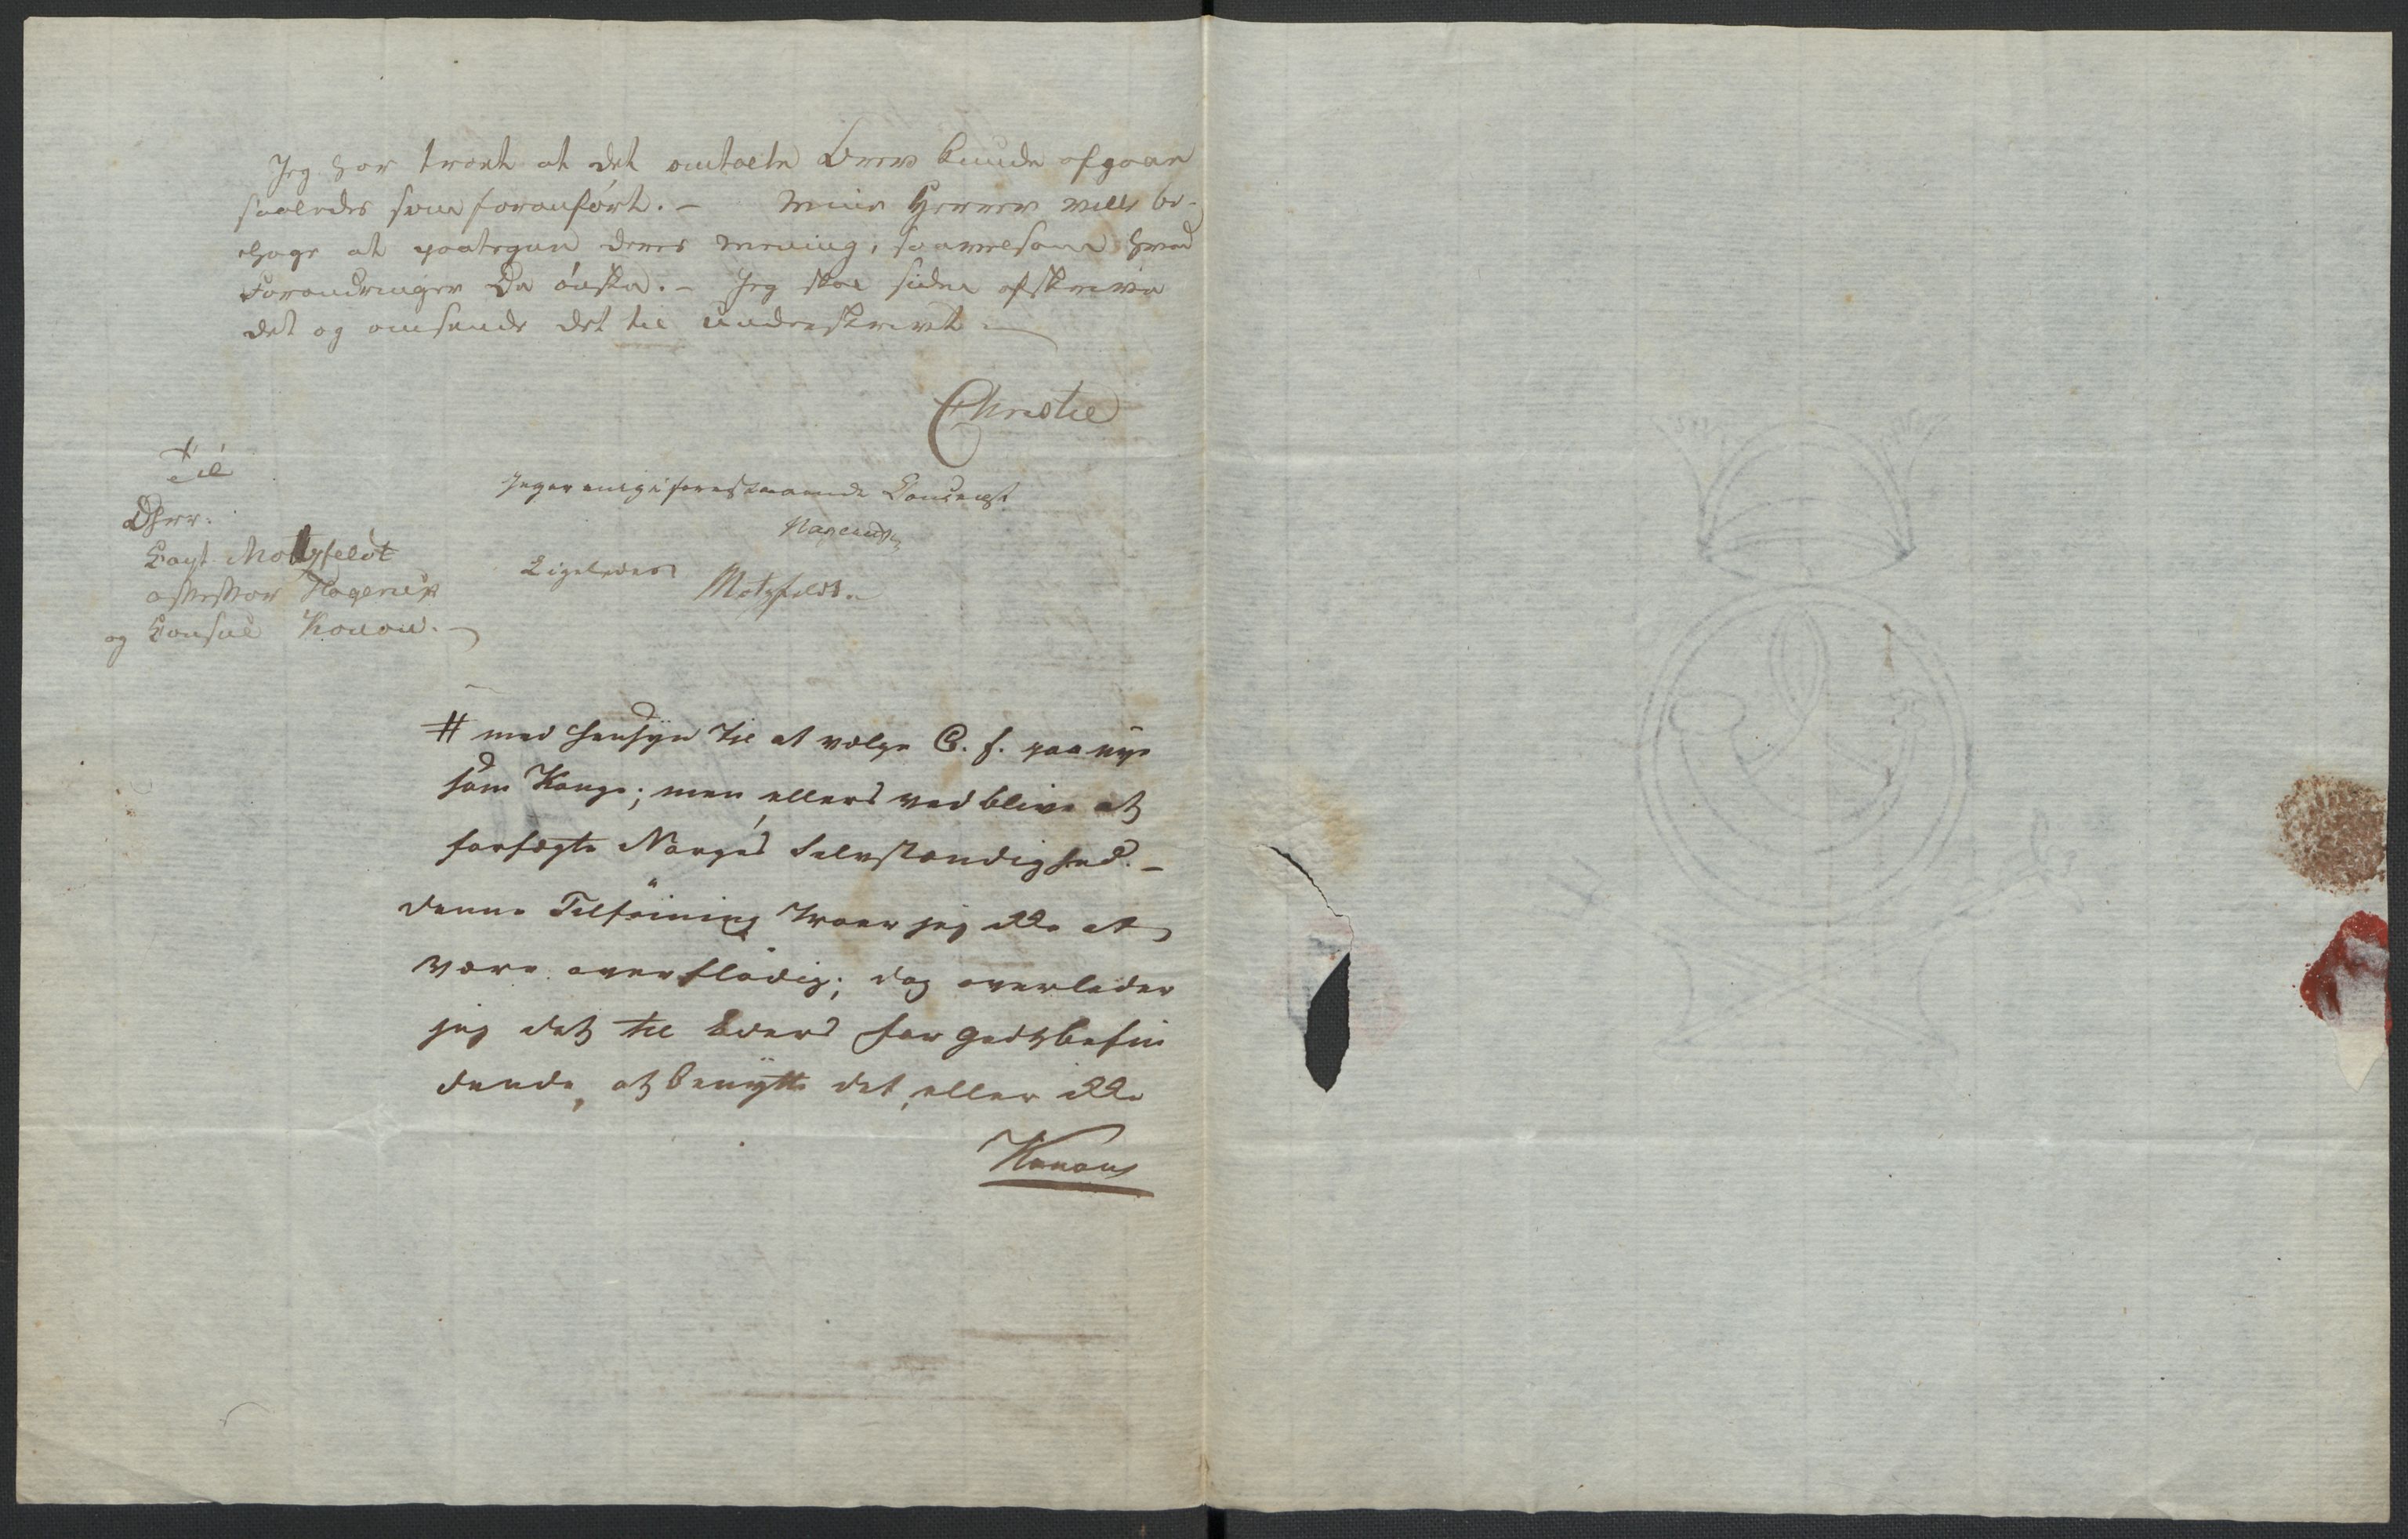 Jeg har troet at det omtalte Brev kunde afgaae
saaledes som foranført. – Mine Herrer ville be-
hage at paategne deres Mening, saavelsom hvad
Forandringer De ønske. – Jeg skal siden afskrive
det og omsende det til Underskrivt
Christie
Til
DHrr.
Capt Motzfeldt
Assessor Hagerup
og Consul Konow.
Jeg er enig i foranstaaende Concept
Hagerup
Ligeledes
Motzfeldt.
# med Hensyn til at vælge C. F. paa nye
som Konge; men ellers vedblive at
forfægte Norges Selvstændighed. –
denne Tilføining troer jeg ikke at
være overflødig; dog overlader
jeg det til Eders for godt befin
dende, at benytte det, eller ikke
Konow